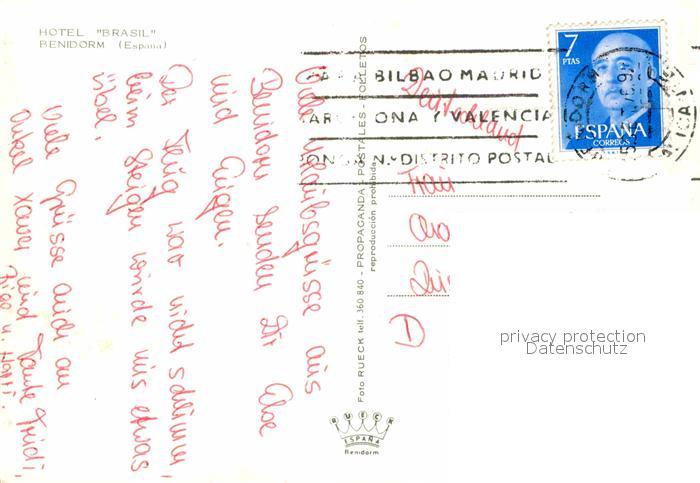 HOTEL "BRASIL"
BENIDORM (España)
Viele Urlaubsgrüsse aus
Benidorm senden Dir Else
und Eugen.
Der Flug war nicht schlimm,
beim Steigen würde uns etwas
übel.
Viele Grüsse auch an
Onkel Xaver und Tante Fridl,
Foto RUECK telf. 360 840 - PROPAGANDA - POSTALES - FOLLETOS
reproducción prohibida
RUECK
ESPAÑA
Benidorm
BILBAO MADRID
Y VALENCIA
N.º DISTRITO POSTAL
7
PTAS
ESPAÑA
CORREOS
Deutschland
D
privacy protection
Datenschutz